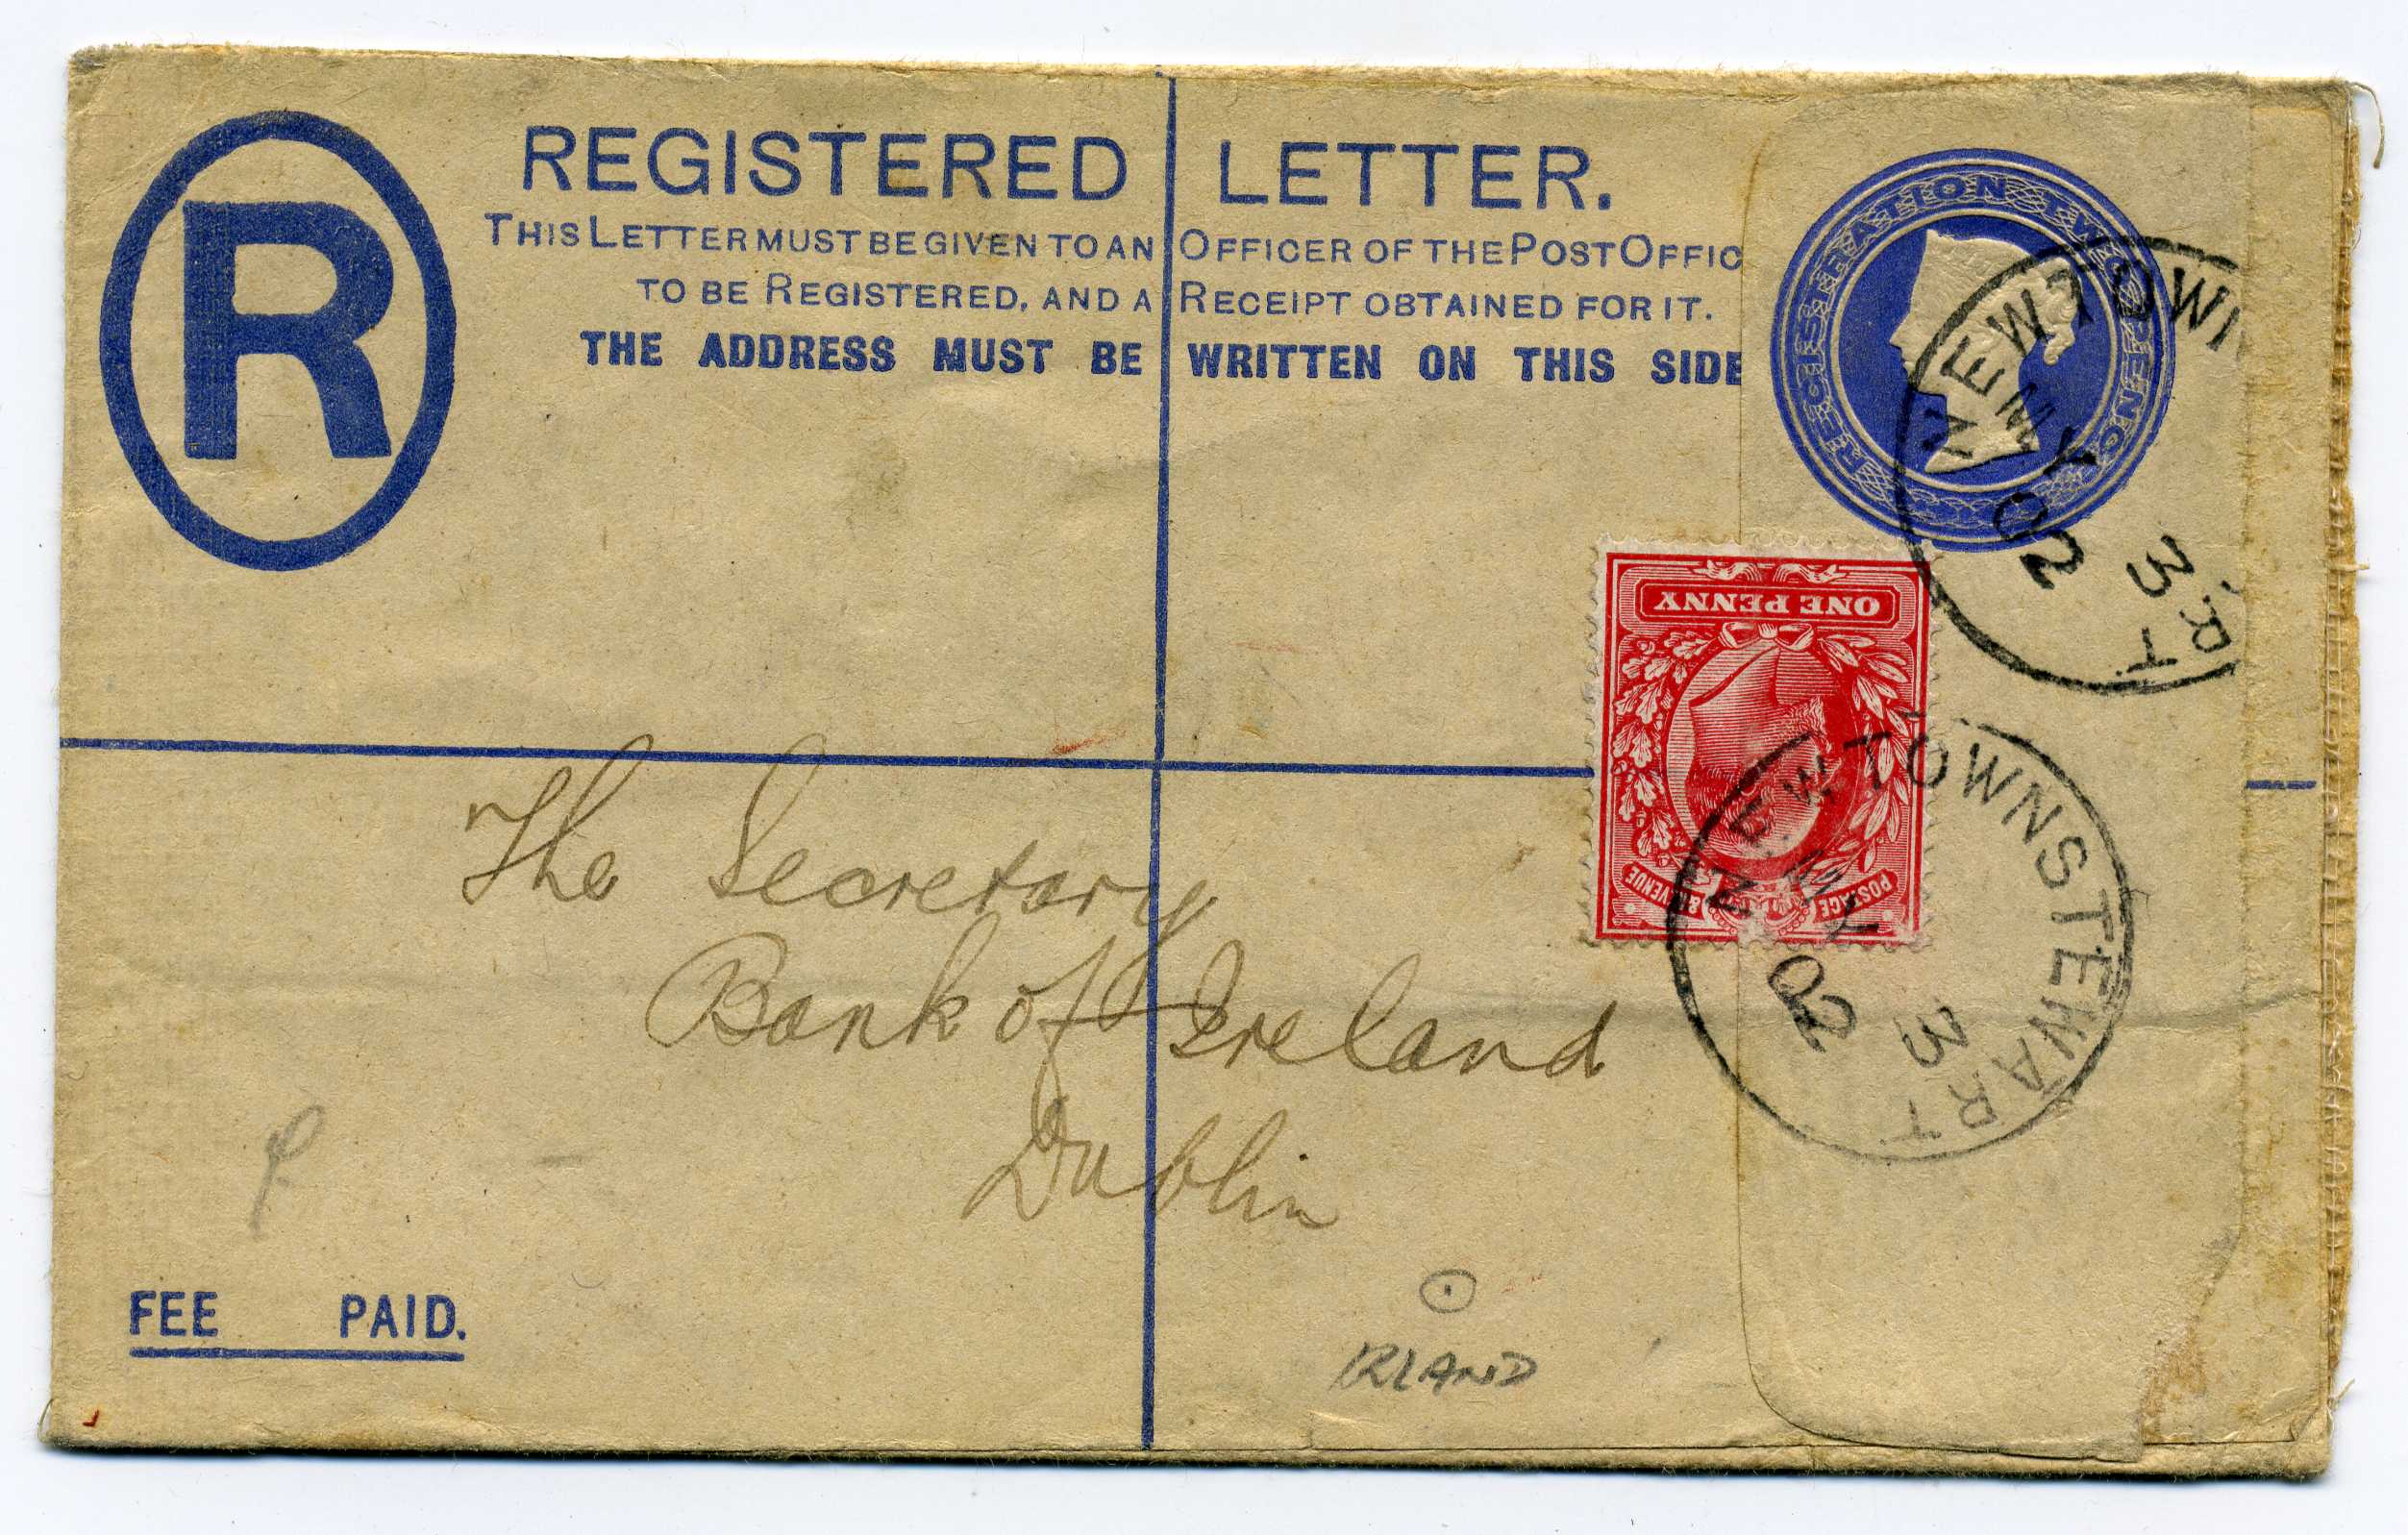 R
REGISTERED LETTER.
THIS LETTER MUST BE GIVEN TO AN OFFICER OF THE POST OFFIC
TO BE REGISTERED, AND A RECEIPT OBTAINED FOR IT.
THE ADDRESS MUST BE WRITTEN ON THIS SIDE
REGISTRATION TWO PENCE
NEWTOWN
MY
3
02
RT
ONE PENNY
POSTAGE & REVENUE
NEWTOWNSTEWART
MY
3
02
The Secretary
Bank of Ireland
Dublin
FEE PAID.
IRLAND